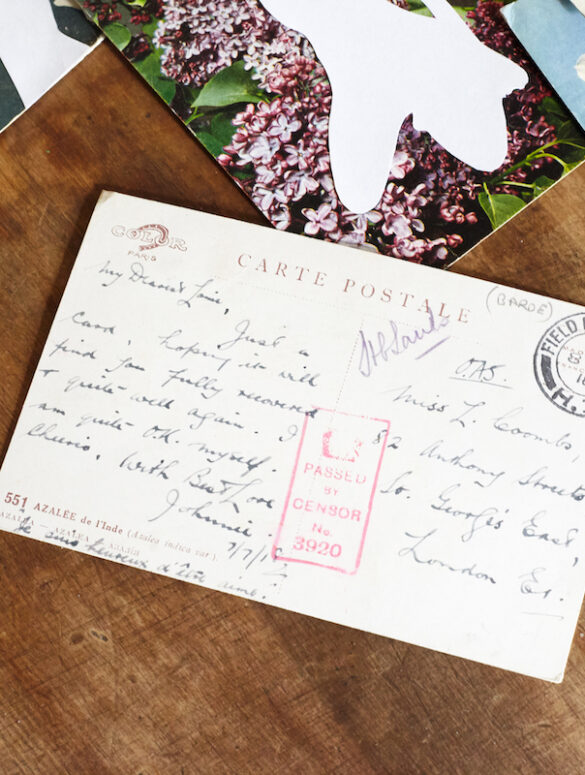 COLOR
PARIS
CARTE POSTALE
(BARDE)
My Dearest
Card, Just a
hoping it will
find you fully recovered
& quite well again. I
am quite OK. myself.
Cheerio, With Best Love
Johnnie
7/7/1
551 AZALÉE de l'Inde (Azalea indica var.)
AZALEA — AZALEA
heureux d'être aimé.
OAS.
Miss L. Coombs,
82 Anthony Street
St. George's East,
London E1.
PASSED
BY
CENSOR
No.
3920
FIELD
8
H.